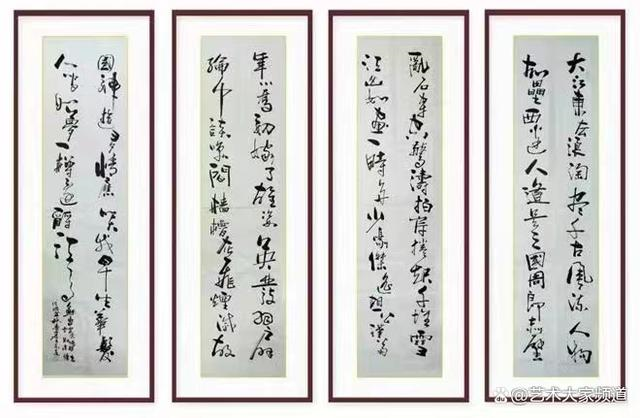 大江東去浪淘盡千古風流人物
故壘西邊人道是三國周郎赤壁
亂石穿空驚濤拍岸捲起千堆雪
江山如畫一時多少豪傑遙想公瑾當
年小喬初嫁了雄姿英發羽扇
綸巾談笑間檣櫓灰飛煙滅故
國神遊多情應笑我早生華髮
人間如夢一樽還酹江月
艺术大家频道